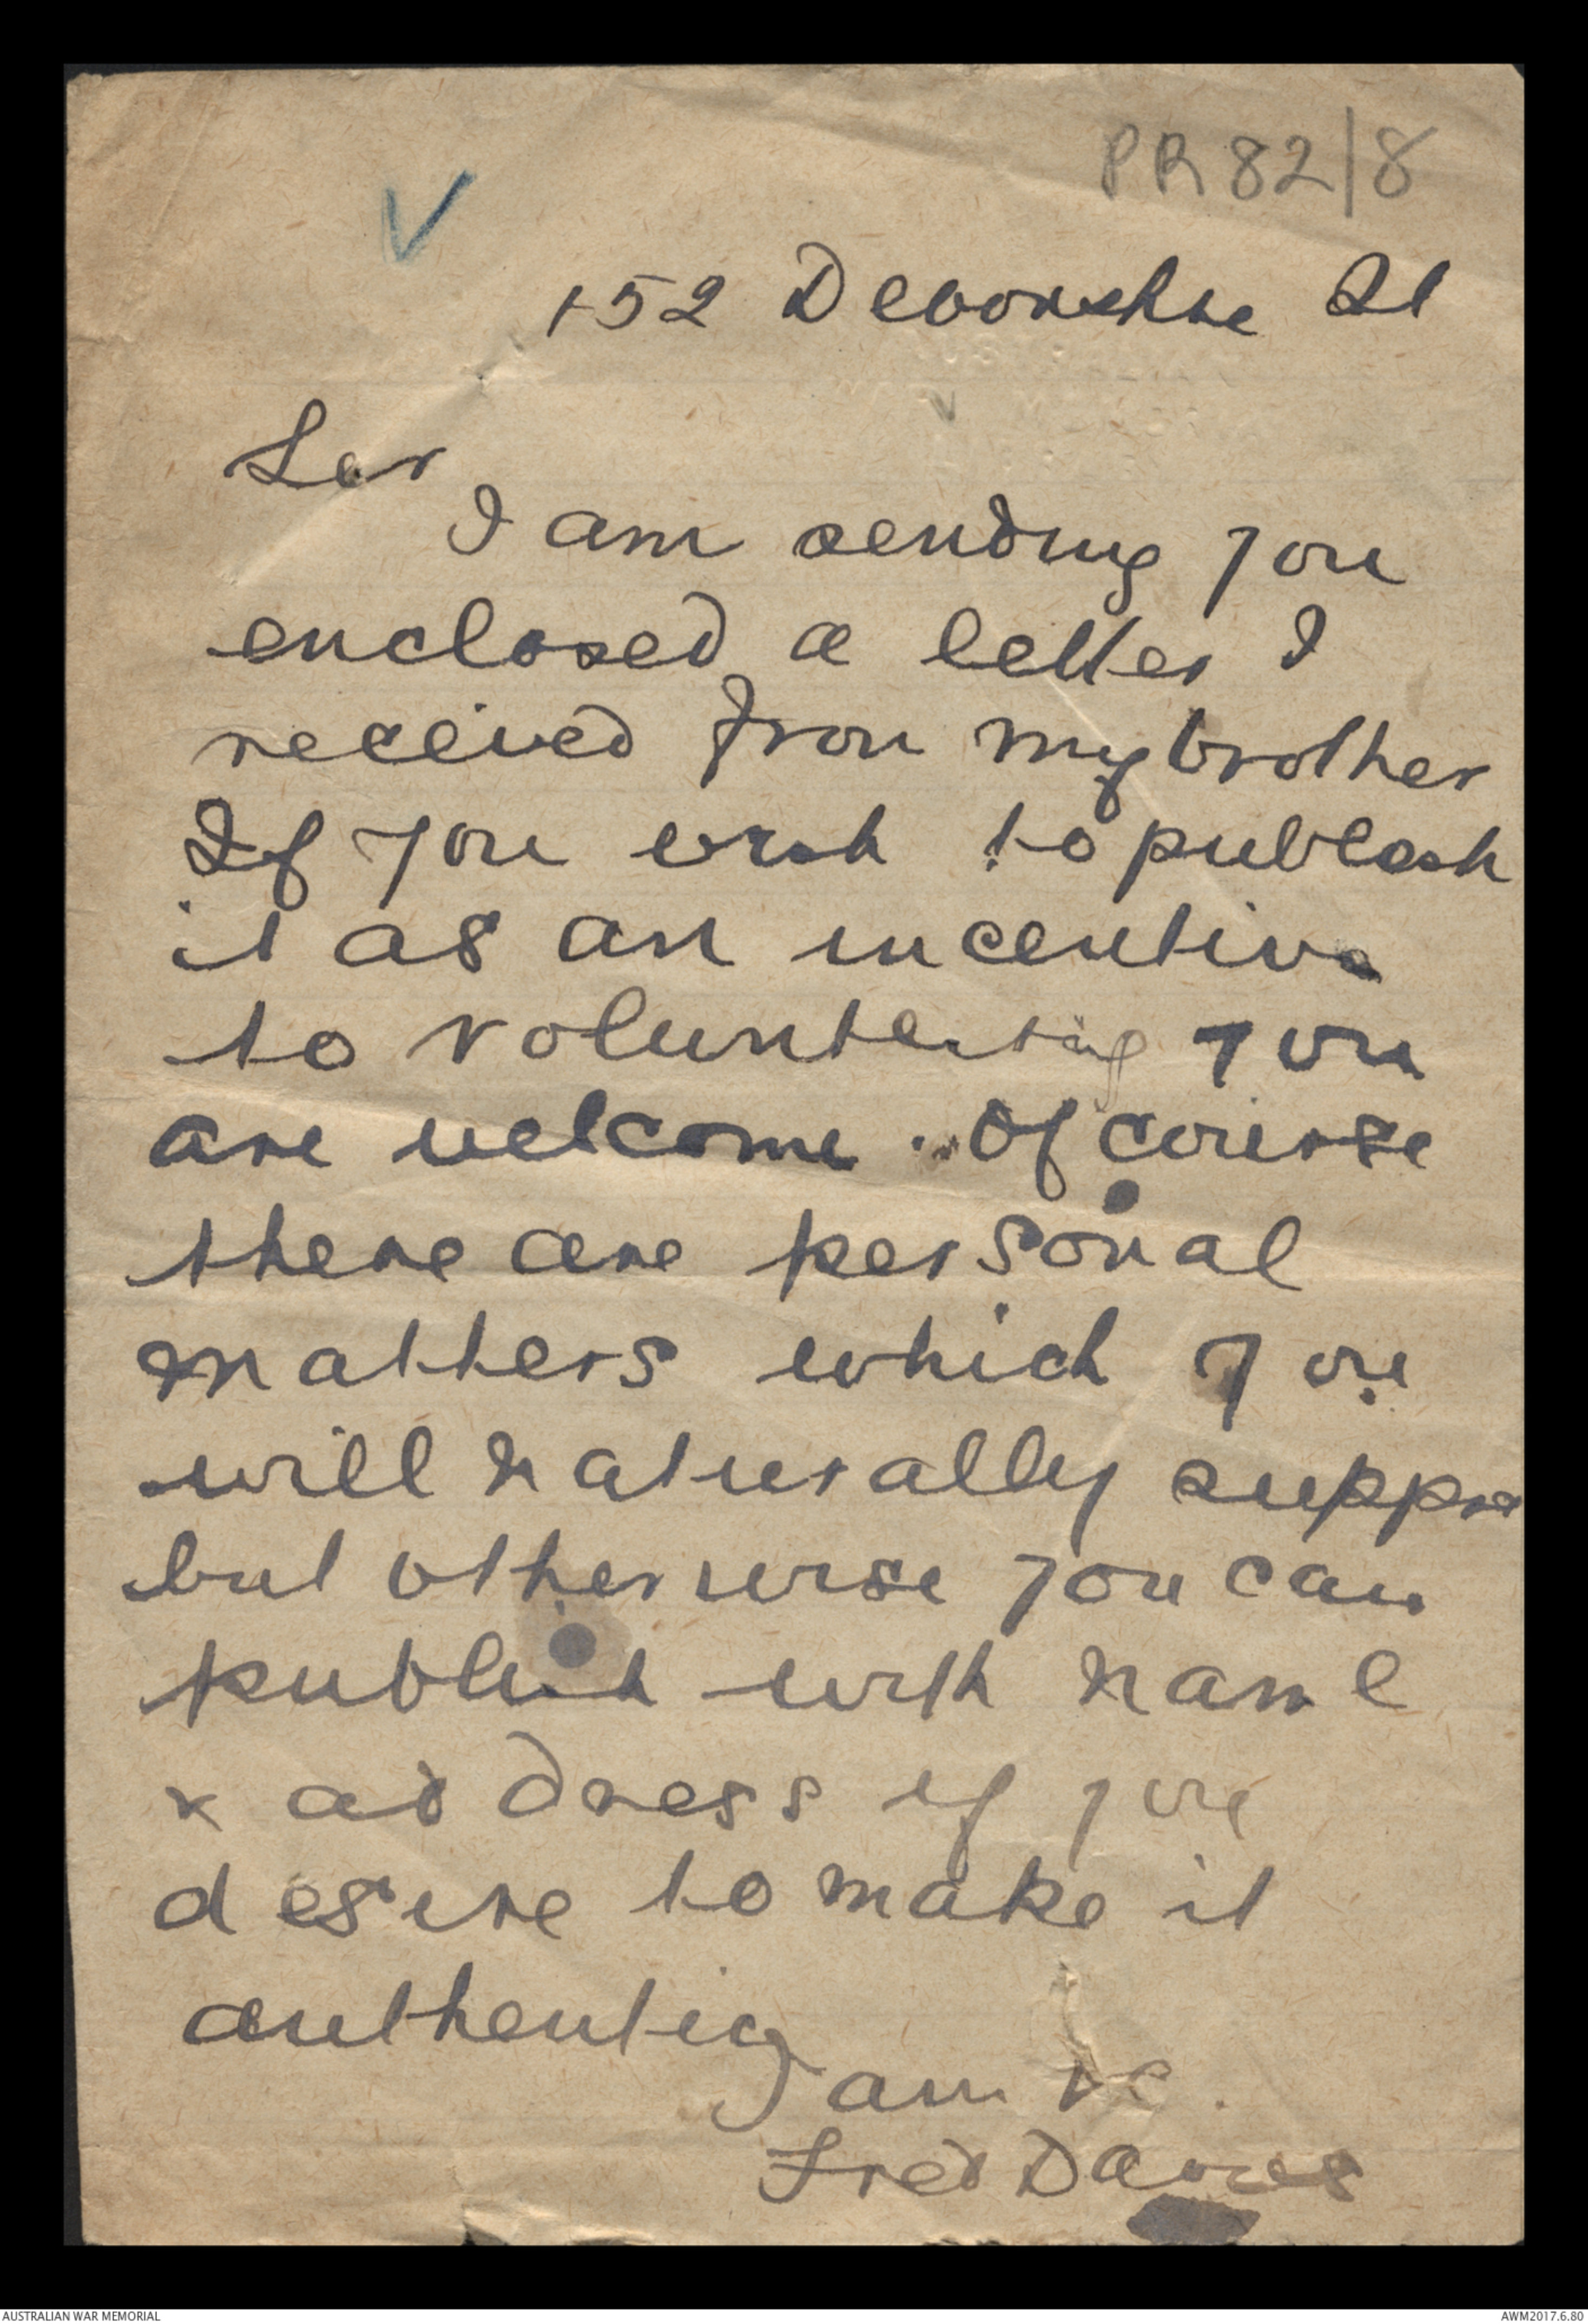 PR 82/8
152 Devonshire St
Sir
I am sending you
enclosed a letter I
received from my brother
If you wish to publish
it as an incentive
to volunteering you
are welcome. Of course
there are personal
matters which you
will naturally suppre
but otherwise you can
publish with name
& address if you
desire to make it
authentic
I am &c.
Fred Davies
AUSTRALIAN WAR MEMORIAL
AWM2017.6.80